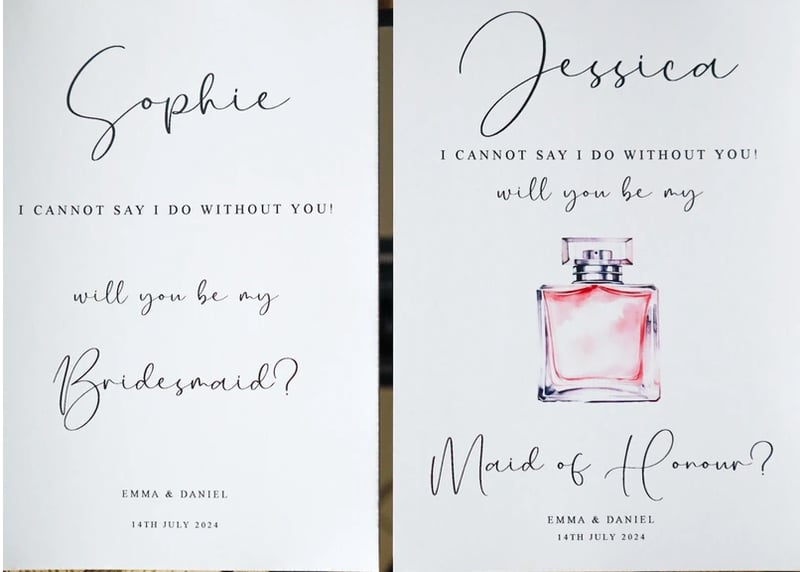 Sophie
I CANNOT SAY I DO WITHOUT YOU!
will you be my
Bridesmaid?
EMMA & DANIEL
14TH JULY 2024
Jessica
I CANNOT SAY I DO WITHOUT YOU!
will you be my
Maid of Honour?
EMMA & DANIEL
14TH JULY 2024